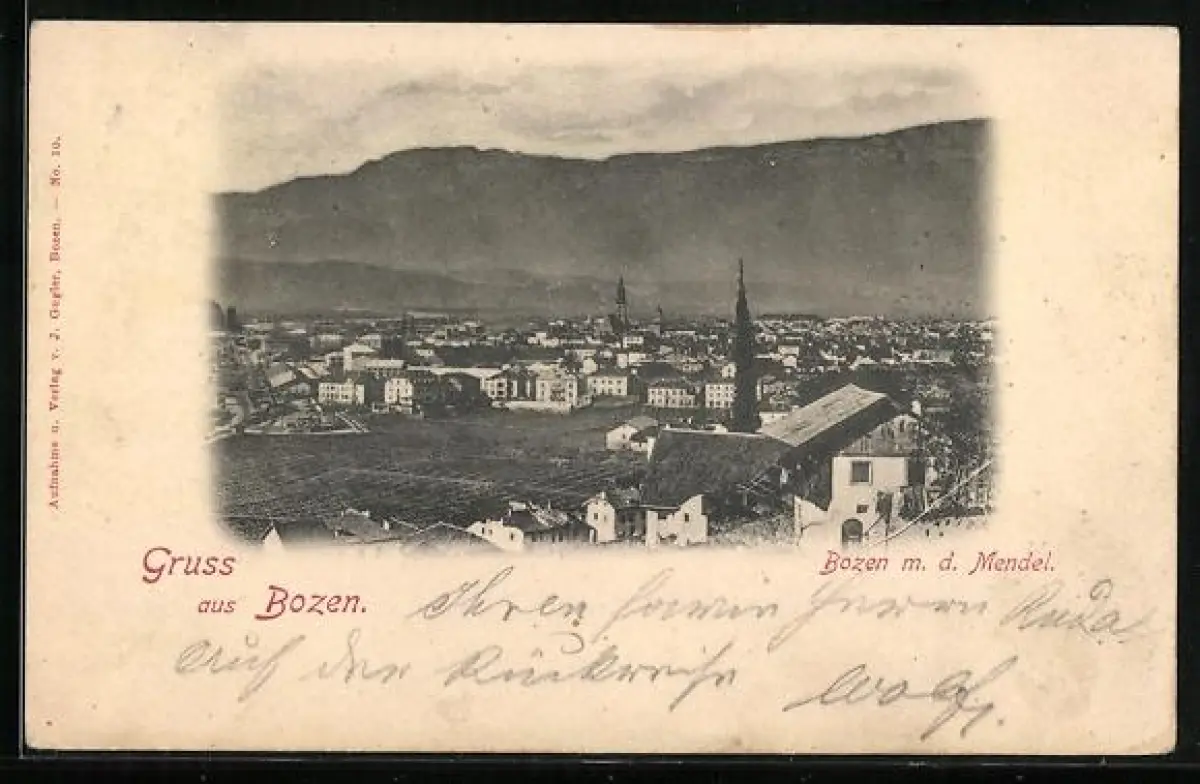 Aufnahme u. Verlag v. J. Gugler, Bozen. — No. 10.
Gruss
aus Bozen.
Bozen m. d. Mendel.
Ihren Herrn
auf der Rückreise Wolf.